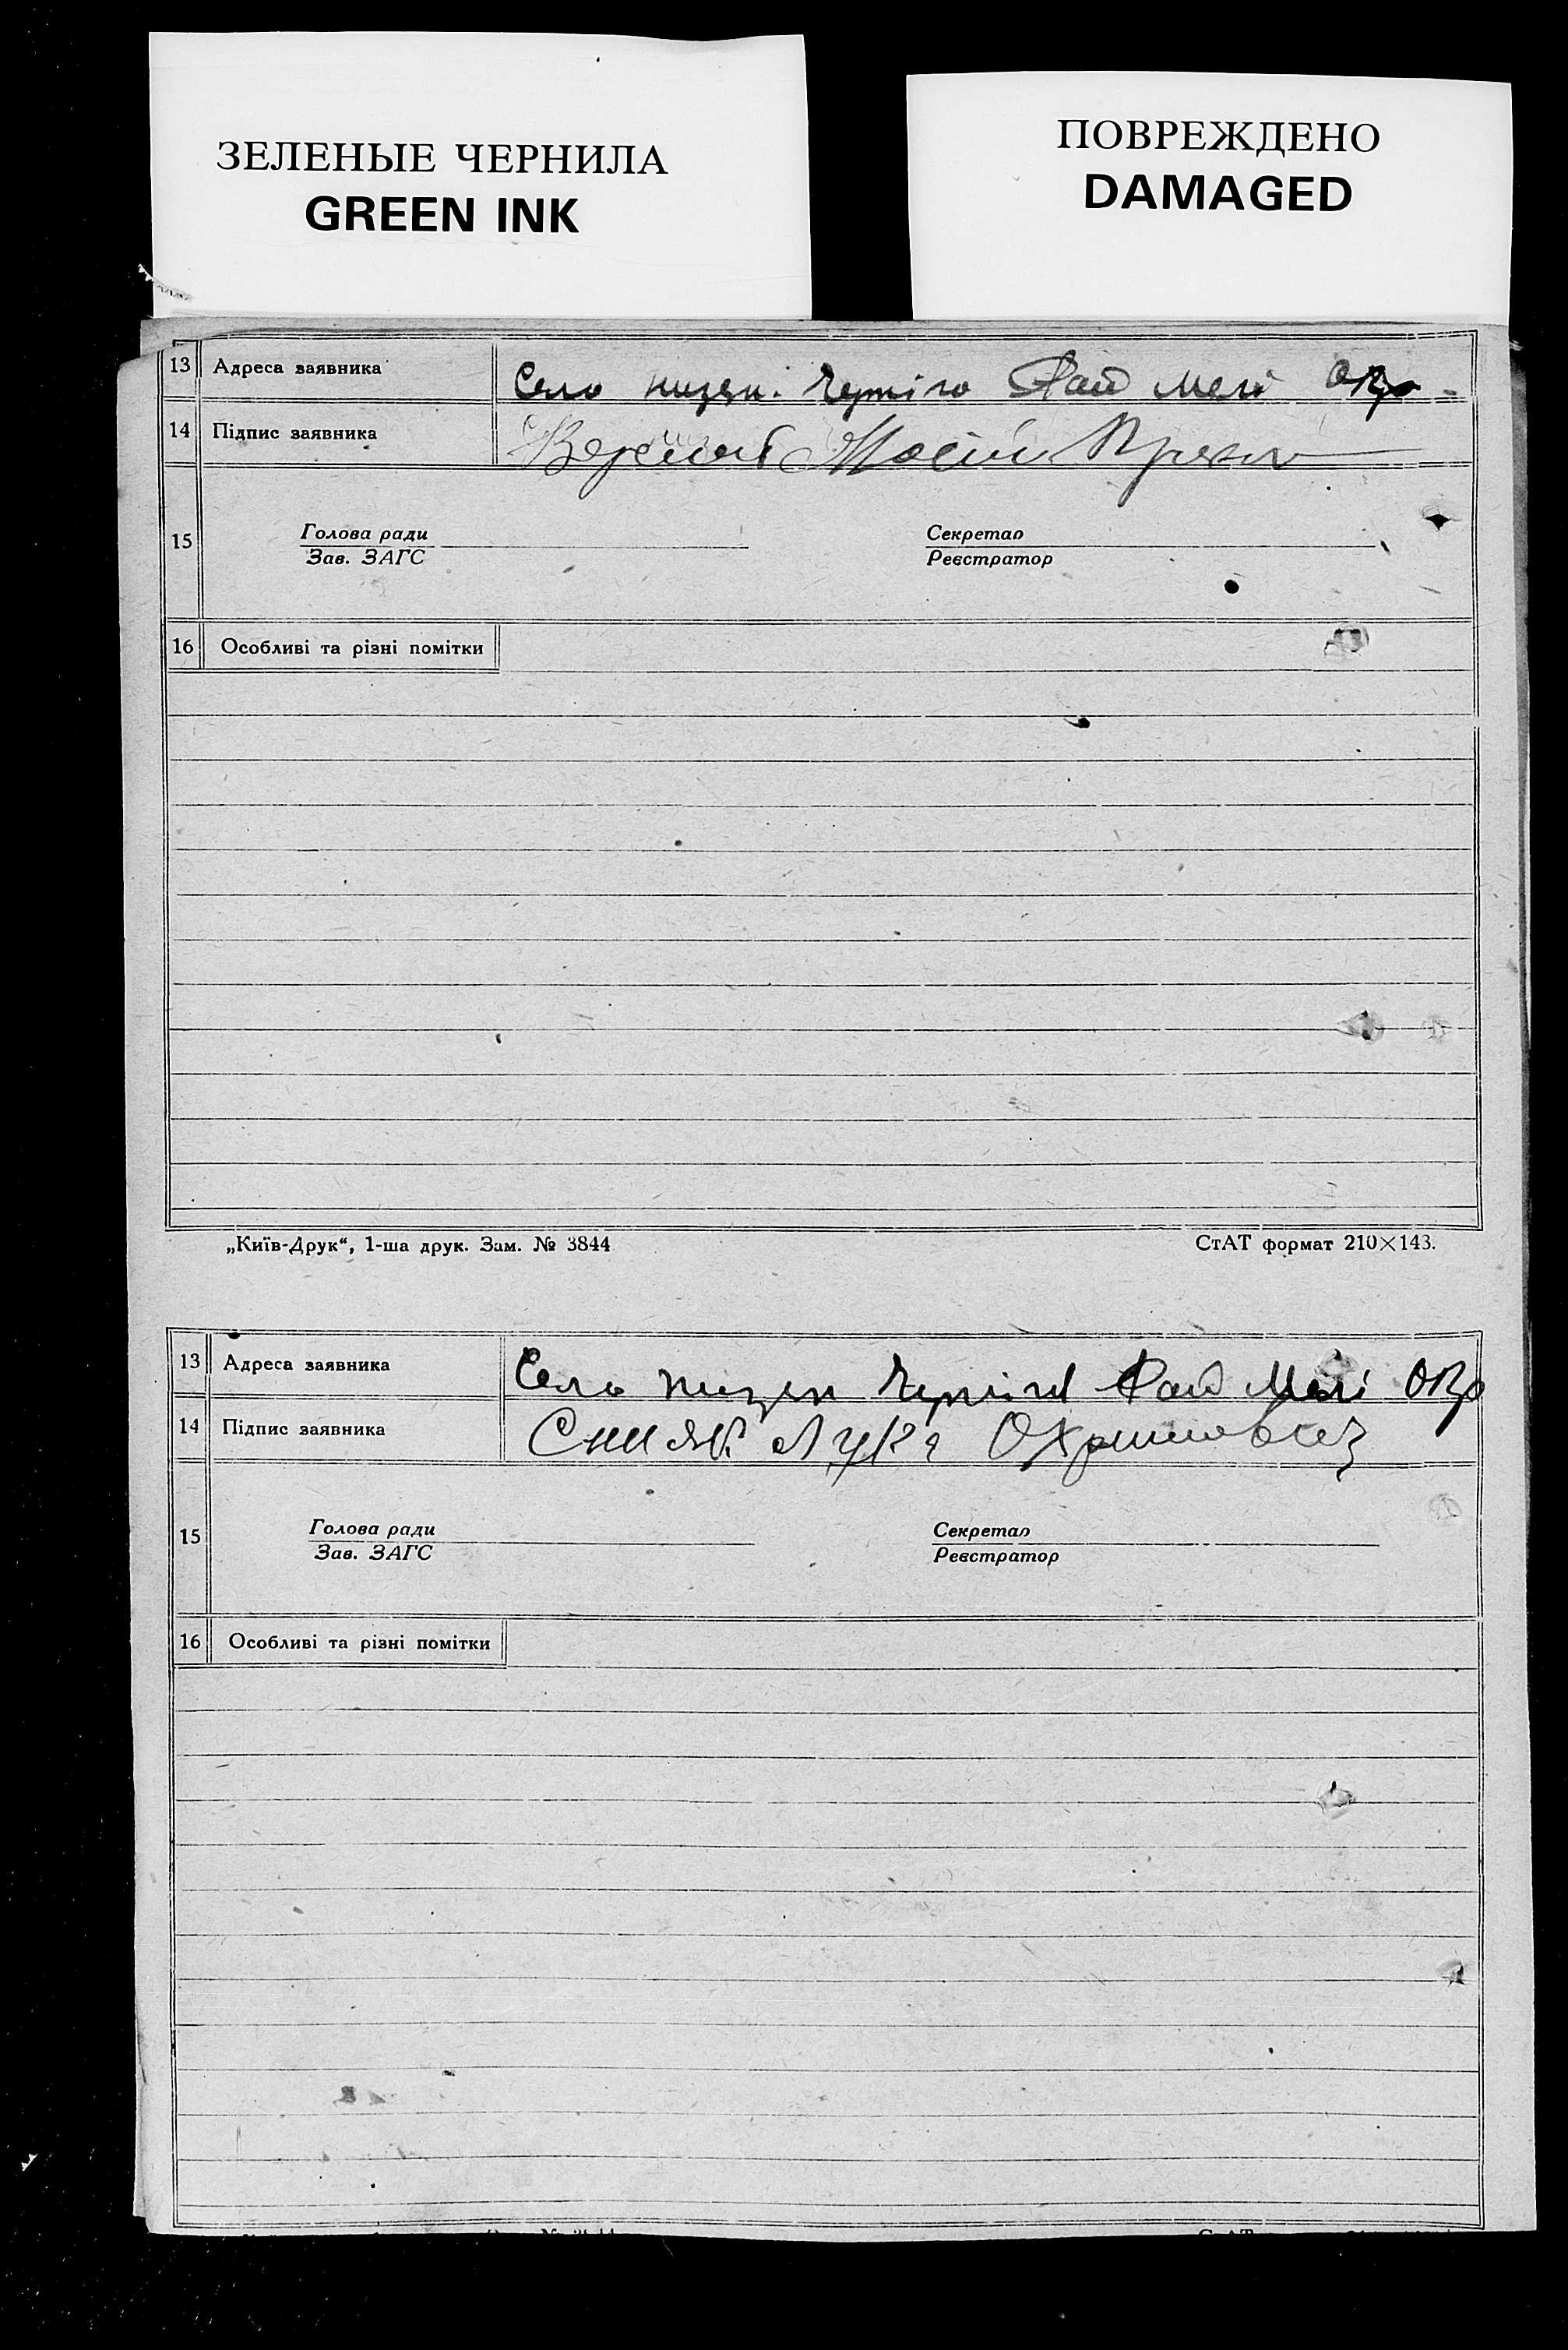 ЗЕЛЕНЫЕ ЧЕРНИЛА
GREEN INK
ПОВРЕЖДЕНО
DAMAGED
13 Адреса заявника Село Рай Мелі Окр
14 Підпис заявника Мосій
15 Голова ради Секретар
Зав. ЗАГС Реєстратор
16 Особливі та різні помітки
„Київ-Друк“, 1-ша друк. Зам. № 3844 СтАТ формат 210×143.
13 Адреса заявника Село Рай Мелі Окр
14 Підпис заявника Сниак Лука
15 Голова ради Секретар
Зав. ЗАГС Реєстратор
16 Особливі та різні помітки